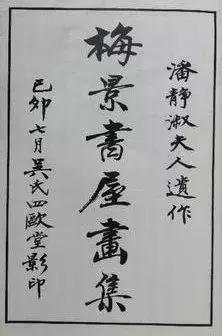 潘靜淑夫人遺作
梅景書屋畫集
己卯七月吳氏四歐堂影印